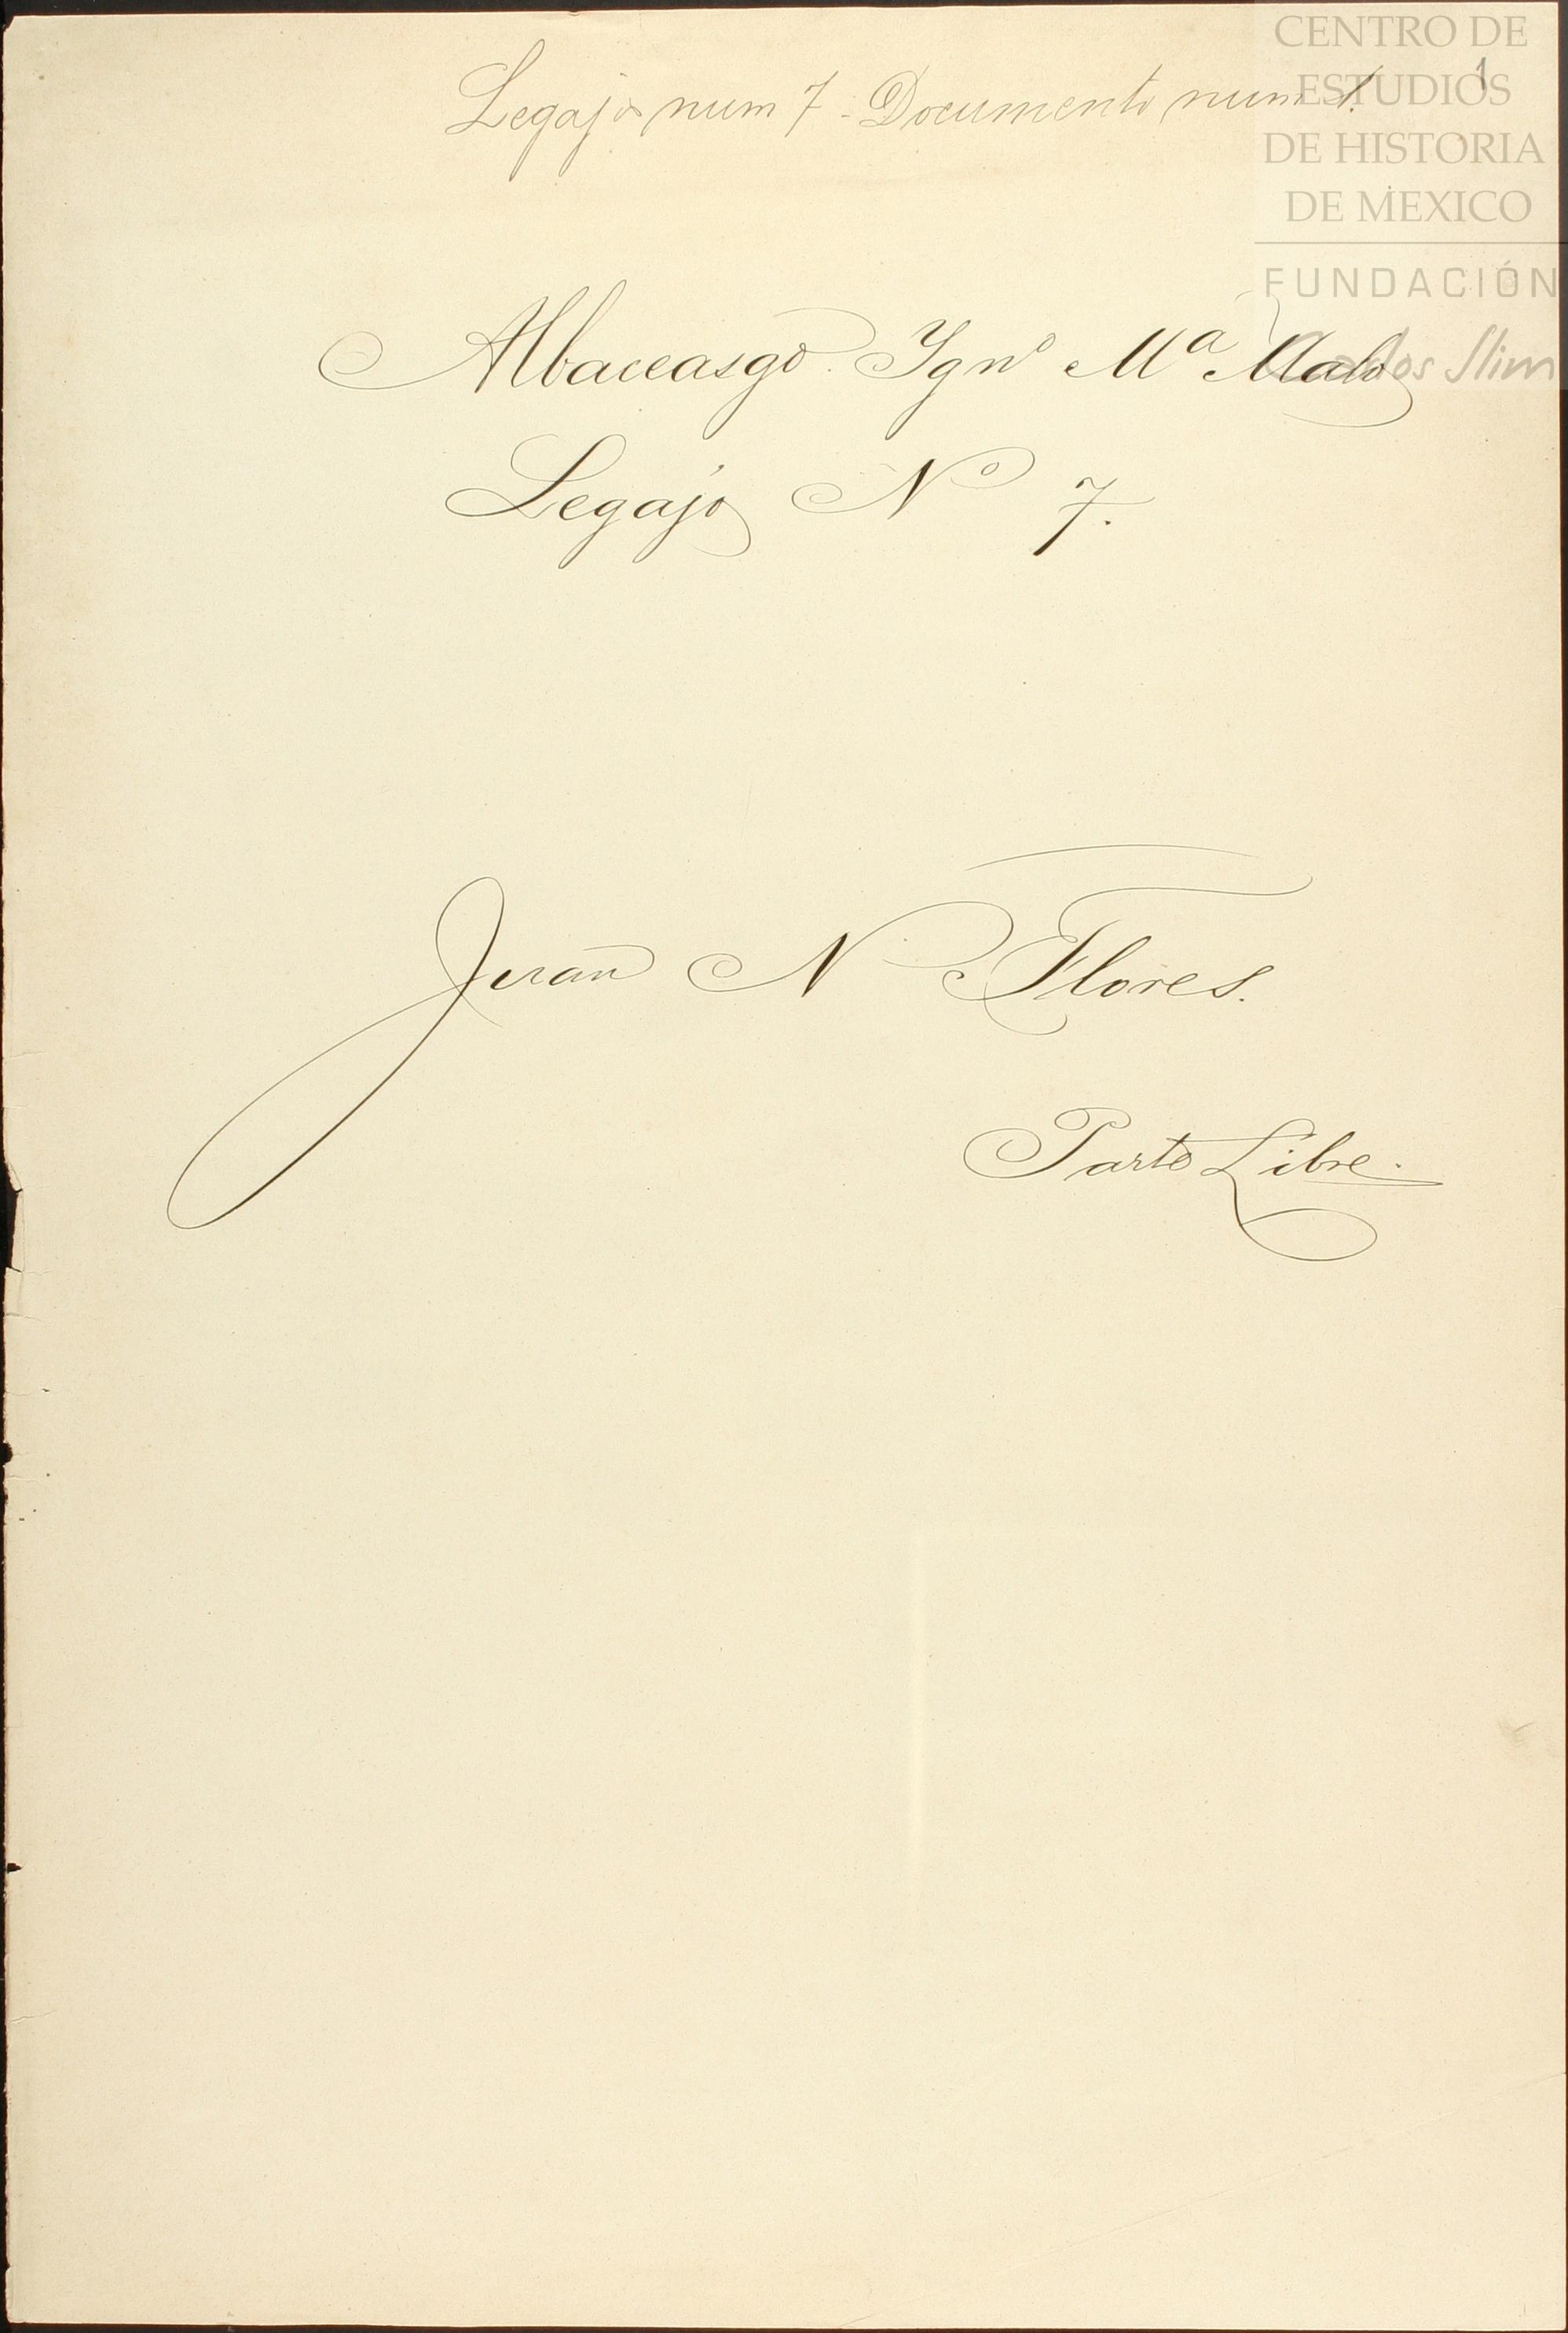 CENTRO DE
ESTUDIOS
DE HISTORIA
DE MEXICO
FUNDACIÓN
Carlos Slim
1
Legajo num 7 - Documento num 1.
Albaceasgo. Ygnº Mª Malo
Legajo Nº 7.
Juan N Flores.
Parte Libre.